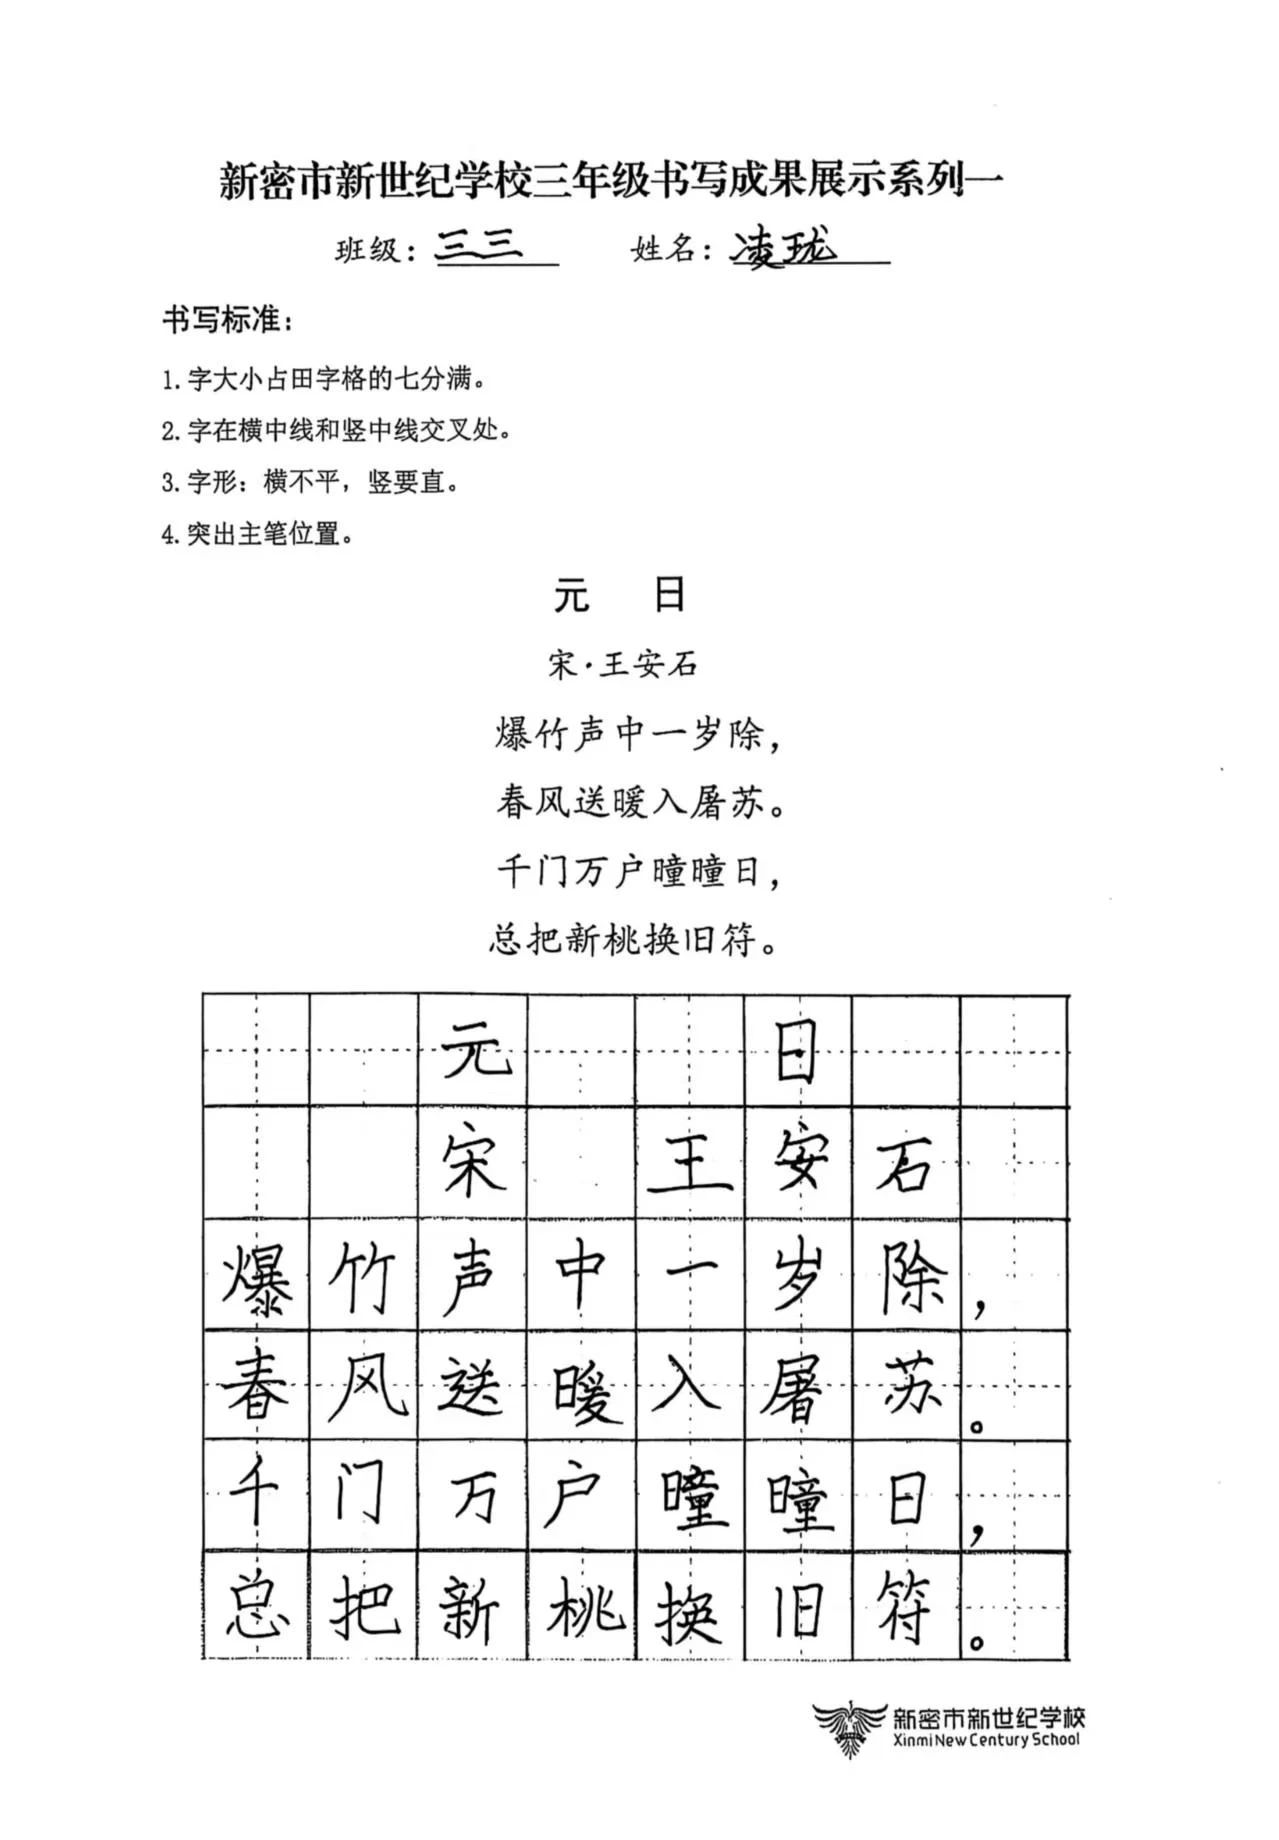 新密市新世纪学校三年级书写成果展示系列一
班级：三三 姓名：凌珑
书写标准：
1.字大小占田字格的七分满。
2.字在横中线和竖中线交叉处。
3.字形：横不平，竖要直。
4.突出主笔位置。
元 日
宋·王安石
爆竹声中一岁除，
春风送暖入屠苏。
千门万户曈曈日，
总把新桃换旧符。
元 日
宋 王安石
爆竹声中一岁除，
春风送暖入屠苏。
千门万户曈曈日，
总把新桃换旧符。
新密市新世纪学校
Xinmi New Century School